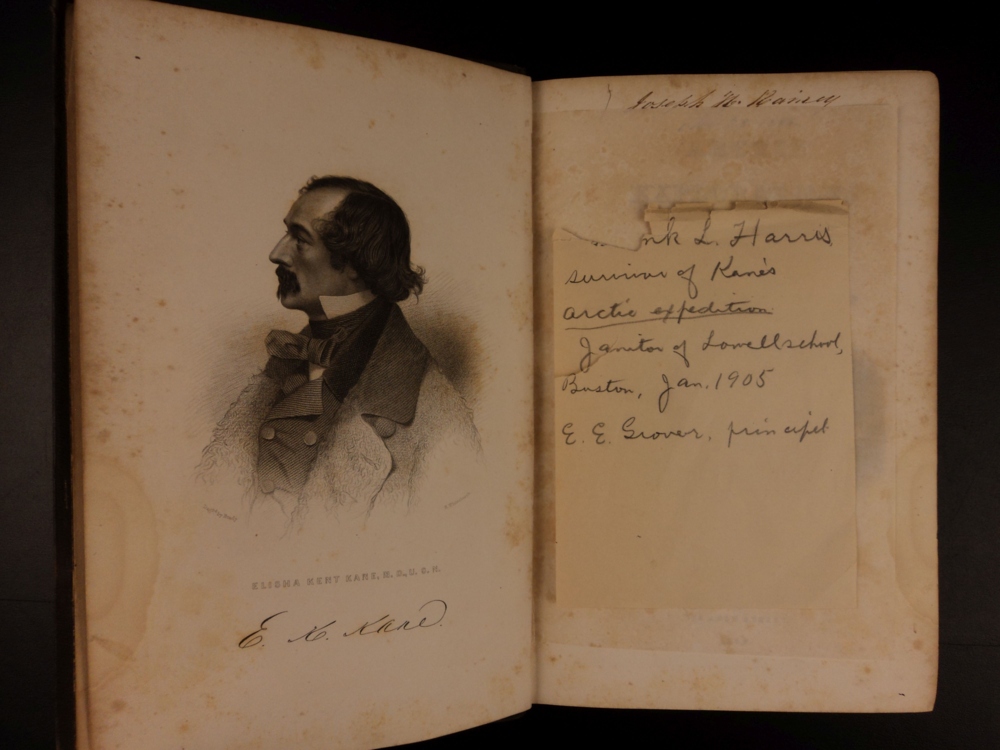 ELISHA KENT KANE, M.D., U.S.N.
E. K. Kane
Joseph W. Rainey
nk L. Harris
survivor of Kane's
arctic expedition
Janitor of Lowell school,
Boston, Jan. 1905
E. E. Grover, principal